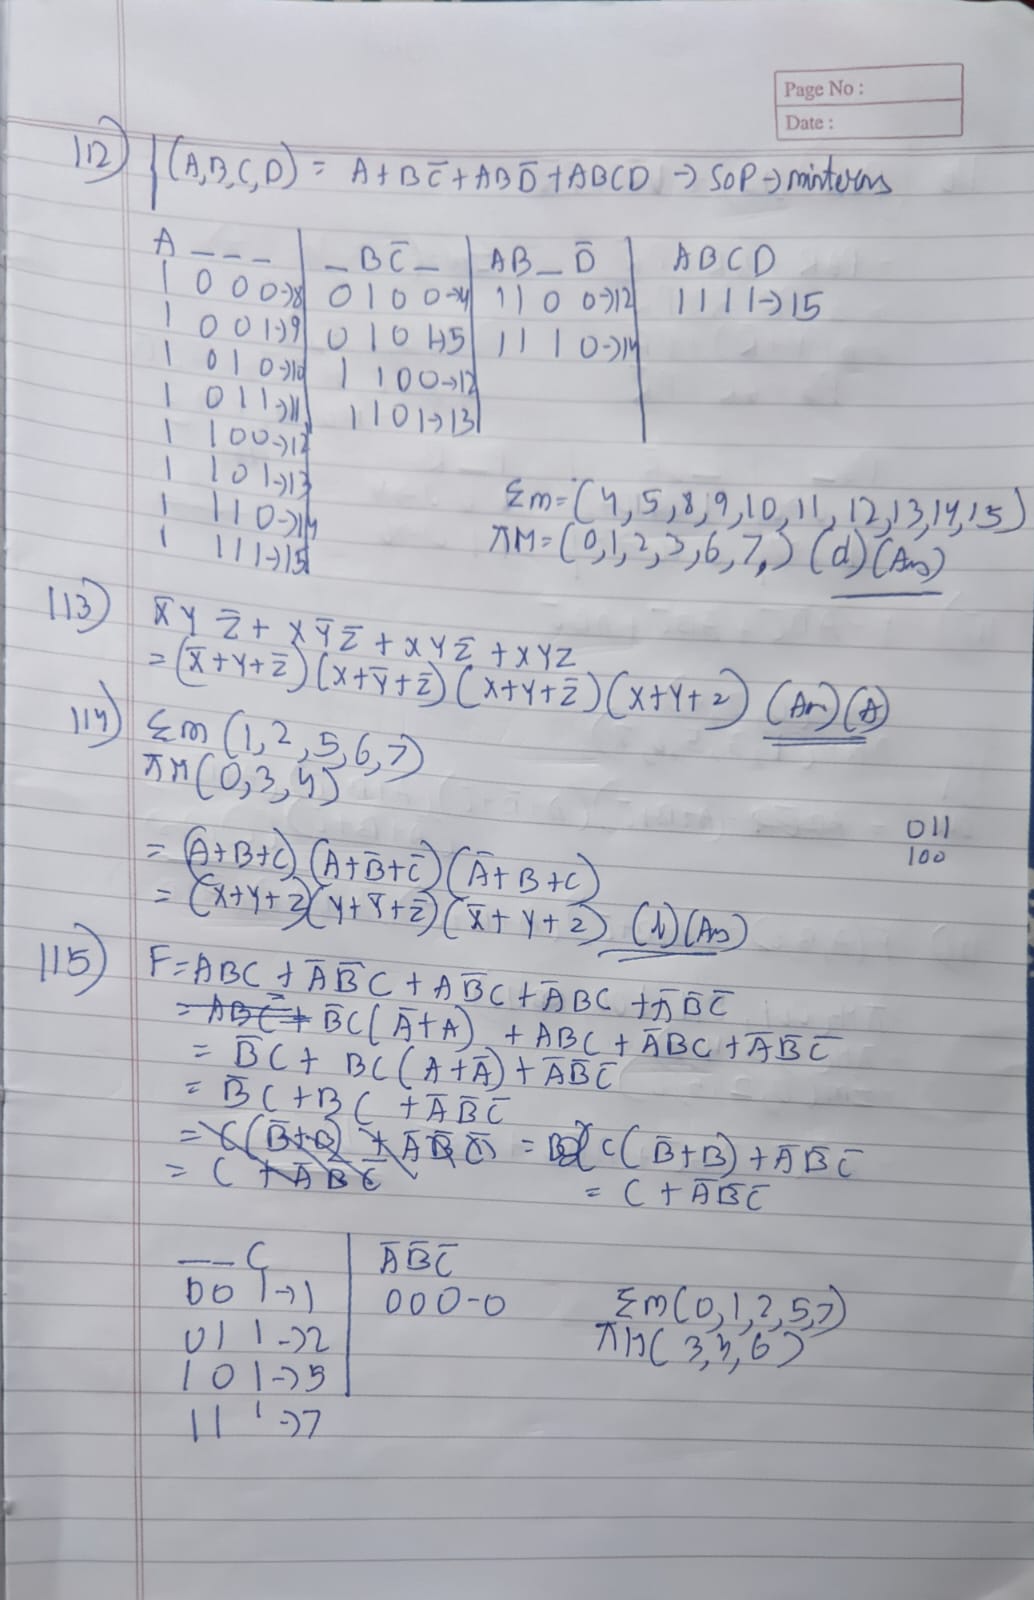 Page No :
Date :
112) f(A,B,C,D) = A+BC̅+ABD̅+ABCD → SOP→minterms
A _ _ _ | _BC̅_ | AB_D̅ | ABCD
1 000→8 | 0100→4 | 1100→12 | 1111→15
1 001→9 | 0101→5 | 1110→14
1 010→10 | 1100→12
1 011→11 | 1101→13
1 100→12
1 101→13
1 110→14
1 111→15
Σm=(4,5,8,9,10,11,12,13,14,15)
πM=(0,1,2,3,6,7,) (d)(Ans)
113) X̅YZ̅+XY̅Z̅+XYZ̅+XYZ
=(X̅+Y+Z̅)(X+Y̅+Z̅)(X+Y+Z̅)(X+Y+Z) (Ans)(A)
114) Σm(1,2,5,6,7)
πM(0,3,4)
011
100
=(A+B+C)(A+B̅+C̅)(A̅+B+C)
=(X+Y+Z)(Y+Y̅+Z̅)(X̅+Y+Z) (d)(Ans)
115) F=ABC+A̅B̅C+AB̅C+A̅BC+A̅B̅C̅
= B̅C(A̅+A)+ABC+A̅BC+A̅B̅C̅
= B̅C+BC(A+A̅)+A̅B̅C̅
= B̅C+BC+A̅B̅C̅
= C(B̅+B)+A̅B̅C̅ = C(B̅+B)+A̅B̅C̅
= C+A̅B̅C̅ = C+A̅B̅C̅
_ _ C | A̅B̅C̅
001→1 | 000-0
011→2
101→5
111→7
Σm(0,1,2,5,7)
πM(3,4,6)